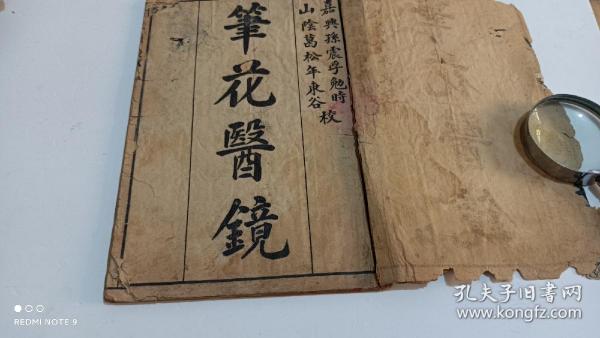 嘉興孫震孚勉時
山陰葛松年東谷校
筆花醫鏡
REDMI NOTE 9
孔夫子旧书网
www.kongfz.com